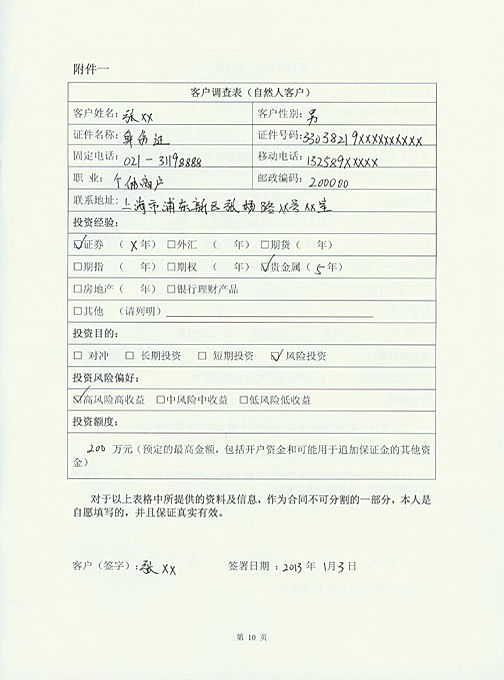 附件一
客户调查表（自然人客户）
客户姓名：张xx 客户性别：男
证件名称：身份证 证件号码：3303821 9XXXXXXXXXX
固定电话：021-31198888 移动电话：132589XXXXX
职 业：个体商户 邮政编码：200000
联系地址：上海市浦东新区 路xx号xx室
投资经验：
☑证券 （ X 年） □外汇 （ 年） □期货（ 年）
□期指 （ 年） □期权 （ 年） ☑贵金属（ 5 年）
□房地产（ 年） □银行理财产品
□其他 （请列明）
投资目的：
□ 对冲 □ 长期投资 □ 短期投资 ☑ 风险投资
投资风险偏好：
☑高风险高收益 □中风险中收益 □低风险低收益
投资额度：
200 万元（预定的最高金额，包括开户资金和可能用于追加保证金的其他资
金）
对于以上表格中所提供的资料及信息，作为合同不可分割的一部分，本人是
自愿填写的，并且保证真实有效。
客户（签字）：张 xx 签署日期：2013 年 1月3 日
第 10 页